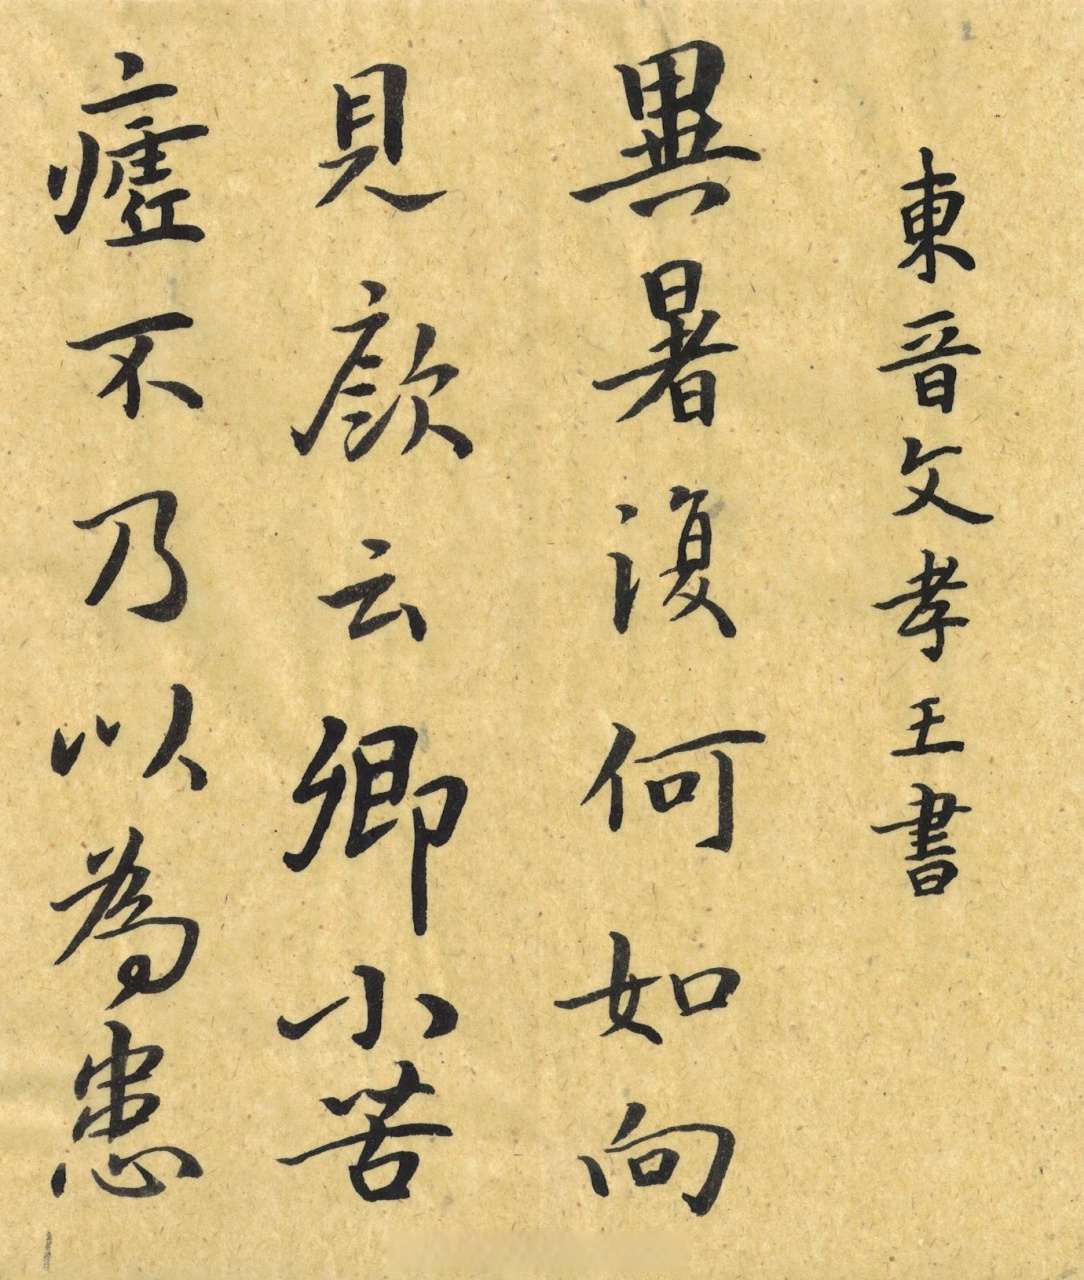 東晉文孝王書
異暑復何如向
見顏云卿小苦
瘧不乃以為患